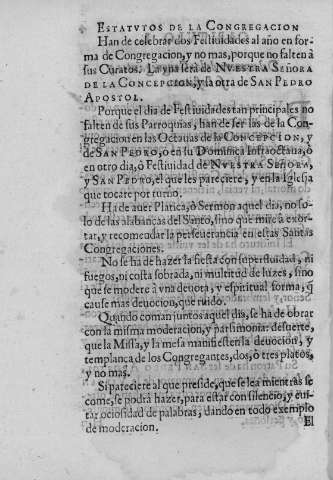 ESTATVTOS DE LA CONGREGACION
Han de celebrar dos Festiuidades al año en for-
ma de Congregacion, y no mas, porque no falten à
sus Curatos. La vna será de NVESTRA SEÑORA
DE LA CONCEPCION, y la otra de SAN PEDRO
APOSTOL.
Porque el dia de Festiuidades tan principales no
falten de sus Parroquias, han de ser las de la Con-
gregacion en las Octauas de la CONCEPCION, y
de SAN PEDRO, ò en su Dominica Infraoctaua, ò
en otro dia, ò Festiuidad de NVESTRA SEÑORA,
y SAN PEDRO, el que les pareciere, y en la Iglesia
que tocare por turno.
Ha de auer Platica, ò Sermon aquel dia, no so-
lo de las alabanças del Santo, sino que mire à exor-
tar, y recomendar la perseuerancia en estas Santas
Congregaciones.
No se ha de hazer la fiesta con superfluidad, ni
fuegos, ni costa sobrada, ni multitud de luzes, sino
que se modere à vna deuota, y espiritual forma, q̃
cause mas deuocion, que ruido.
Quando coman juntos aquel dia, se ha de obrar
con la misma moderacion, y parsimonia: de suerte,
que la Missa, y la mesa manifiesten la deuocion, y
templança de los Congregantes, dos, ò tres platos,
y no mas.
Si pareciere al que preside, que se lea mientras se
come, se podrá hazer, para estar con silencio, y eui-
tar ociosidad de palabras, dando en todo exemplo
de moderacion.
El